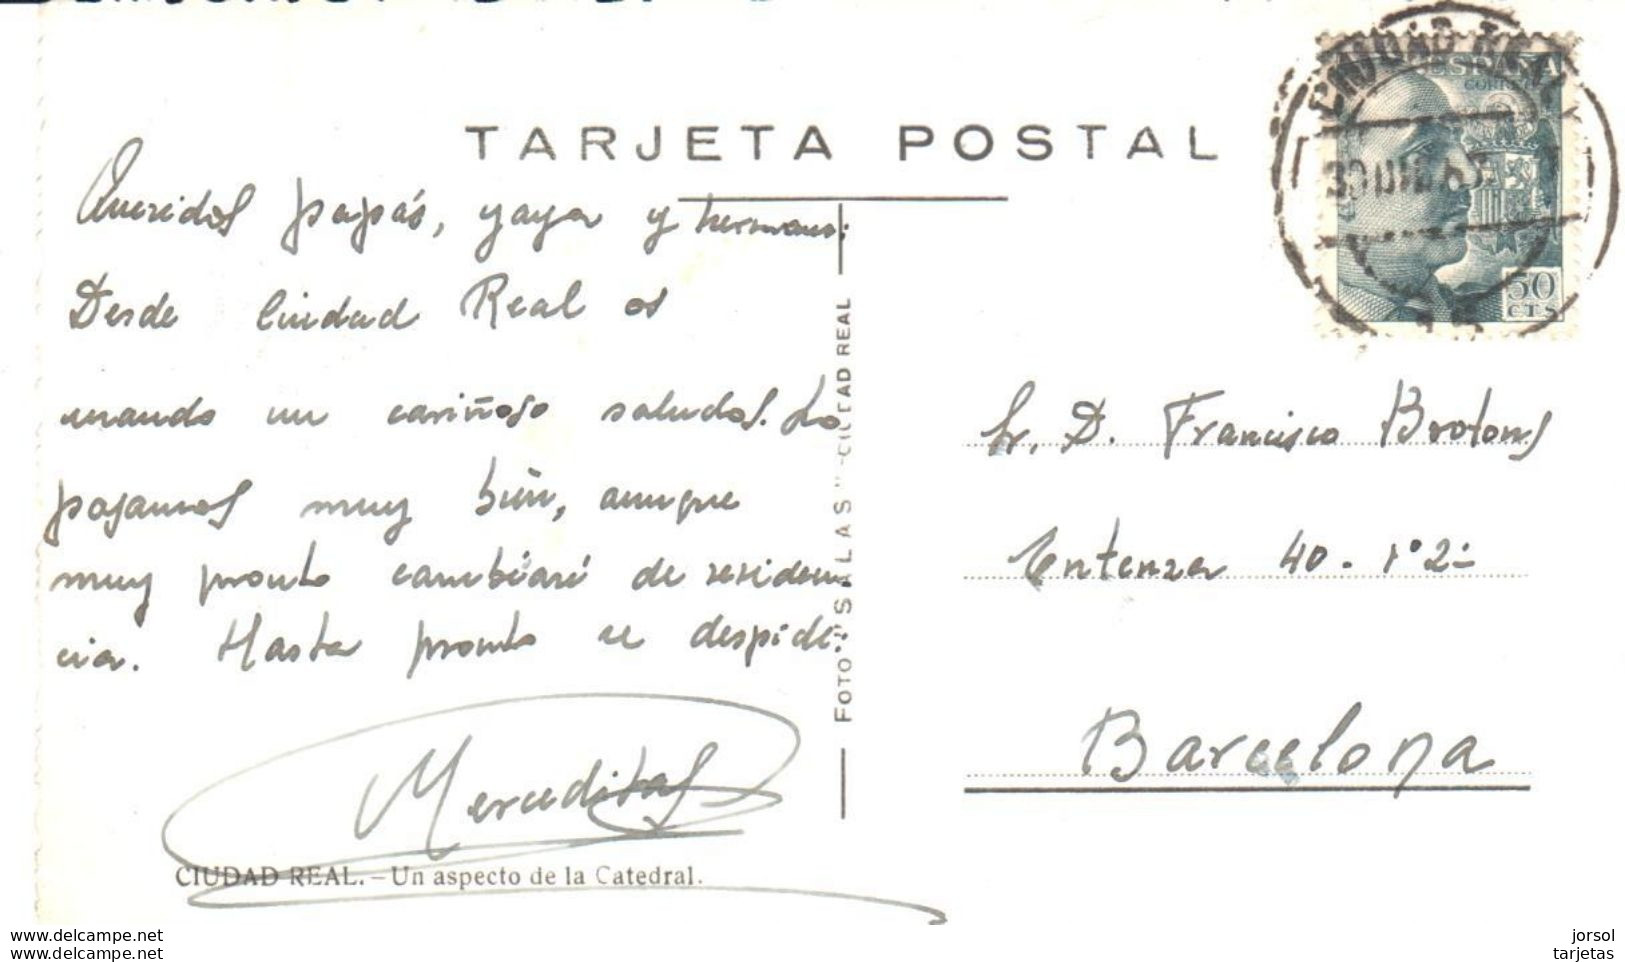 TARJETA POSTAL
Queridos papás, yaya y hermanos:
Desde Ciudad Real os
mando un cariñoso saludos. Lo
pasamos muy bien, aunque
muy pronto cambiaré de residen
cia. Hasta pronto se despide:
Merceditas
CIUDAD REAL.–Un aspecto de la Catedral.
FOTO "SALAS"-CIUDAD REAL
CIUDAD REAL
ESPAÑA
CORREOS
50
CTS
Sr. D. Francisco Brotons
Entenza 40 - 1º 2ª
Barcelona
www.delcampe.net
www.delcampe.net
jorsol
tarjetas